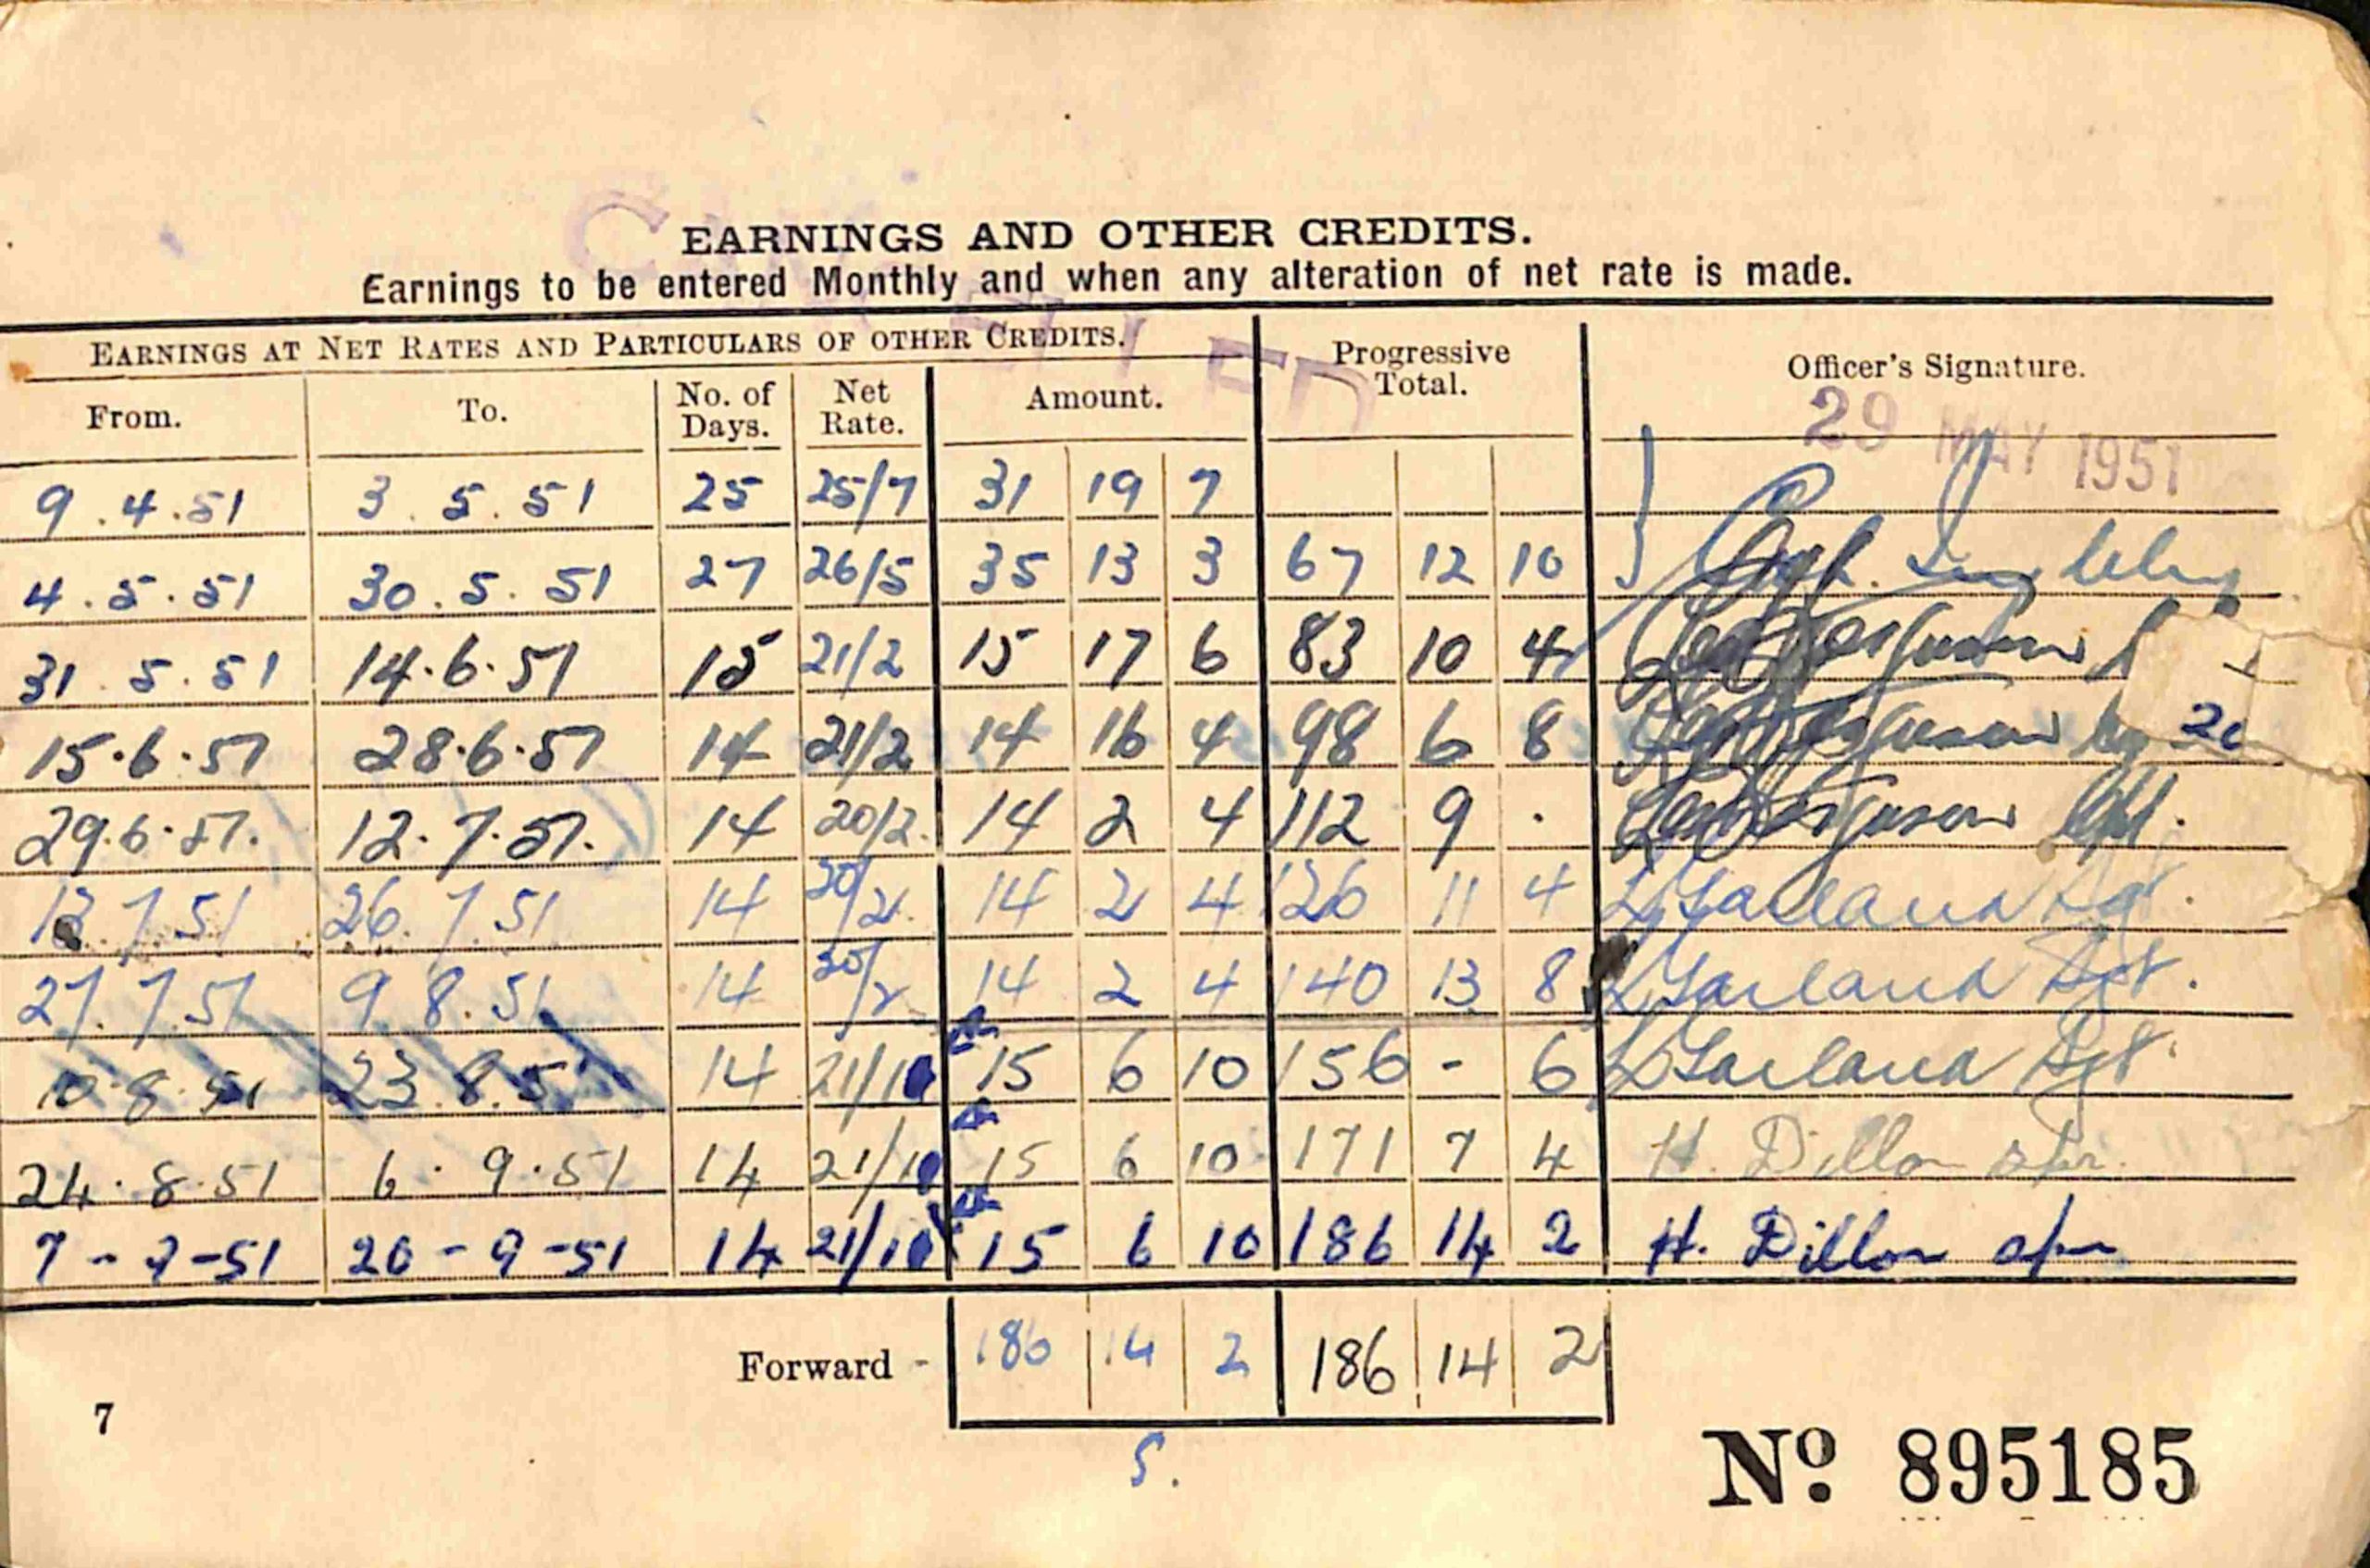 EARNINGS AND OTHER CREDITS.
Earnings to be entered Monthly and when any alteration of net rate is made.
EARNINGS AT NET RATES AND PARTICULARS OF OTHER CREDITS. Progressive Total. Officer's Signature.
From. To. No. of Days. Net Rate. Amount.
29 MAY 1951
9.4.51 3.5.51 25 25/7 31 19 7
4.5.51 30.5.51 27 26/5 35 13 3 67 12 10
31.5.51 14.6.51 15 21/2 15 17 6 83 10 4
15.6.51 28.6.51 14 21/2 14 16 4 98 6 8
29.6.51. 12.7.51. 14 20/2. 14 2 4 112 9 .
13.7.51 26.7.51 14 20/2. 14 2 4 126 11 4 Garland Sgt.
27.7.51 9.8.51 14 20/2 14 2 4 140 13 8 Garland Sgt.
10.8.51 23.8.51 14 21/10 15 6 10 156 - 6 Garland Sgt.
24.8.51 6.9.51 14 21/10 15 6 10 171 7 4 H. Dillon
7-9-51 20-9-51 14 21/10 15 6 10 186 14 2 H. Dillon
Forward - 186 14 2 186 14 2
7
S.
No. 895185